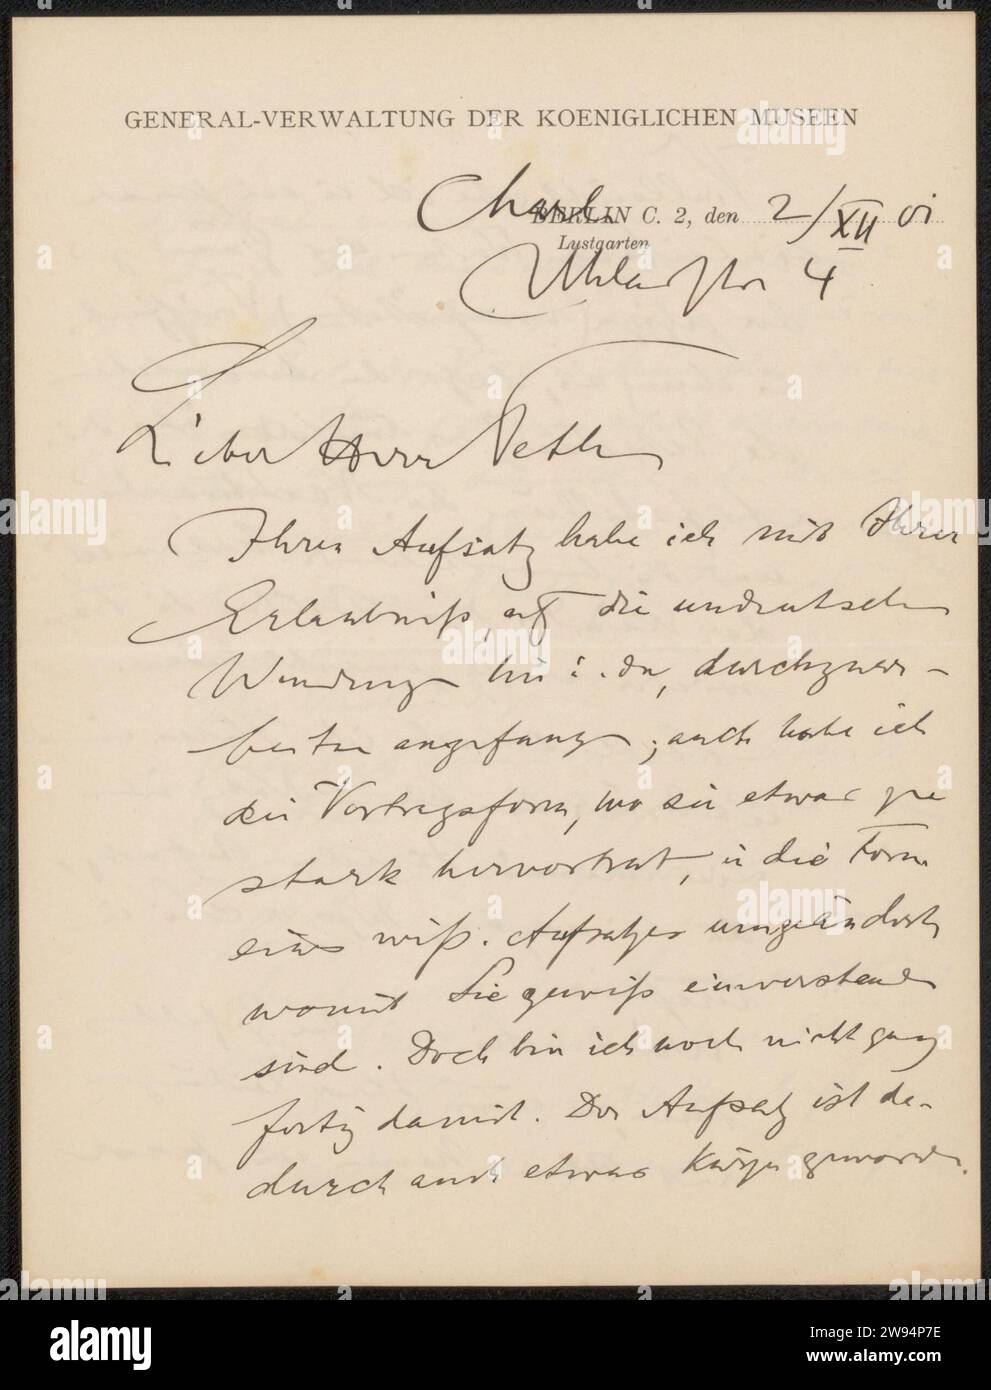 GENERAL-VERWALTUNG DER KOENIGLICHEN MUSEEN
Charl.
BERLIN C. 2, den 2/XII 01
Lustgarten
Uhlandstr 4
Lieber Herr Veth
Ihren Aufsatz habe ich mit Ihrer
Erlaubniß, auf die undeutschen
Wendungen hin u. da, durchzuar-
beiten angefangen; auch habe ich
die Vortragsform, wo sie etwas zu
stark hervortrat, in die Form
eines wiß. Aufsatzes umgeändert,
womit Sie gewiß einverstanden
sind. Doch bin ich noch nicht ganz
fertig damit. Der Aufsatz ist da-
durch auch etwas kürzer geworden.
alamy
alamy
Image ID: 2W94P7E
www.alamy.com